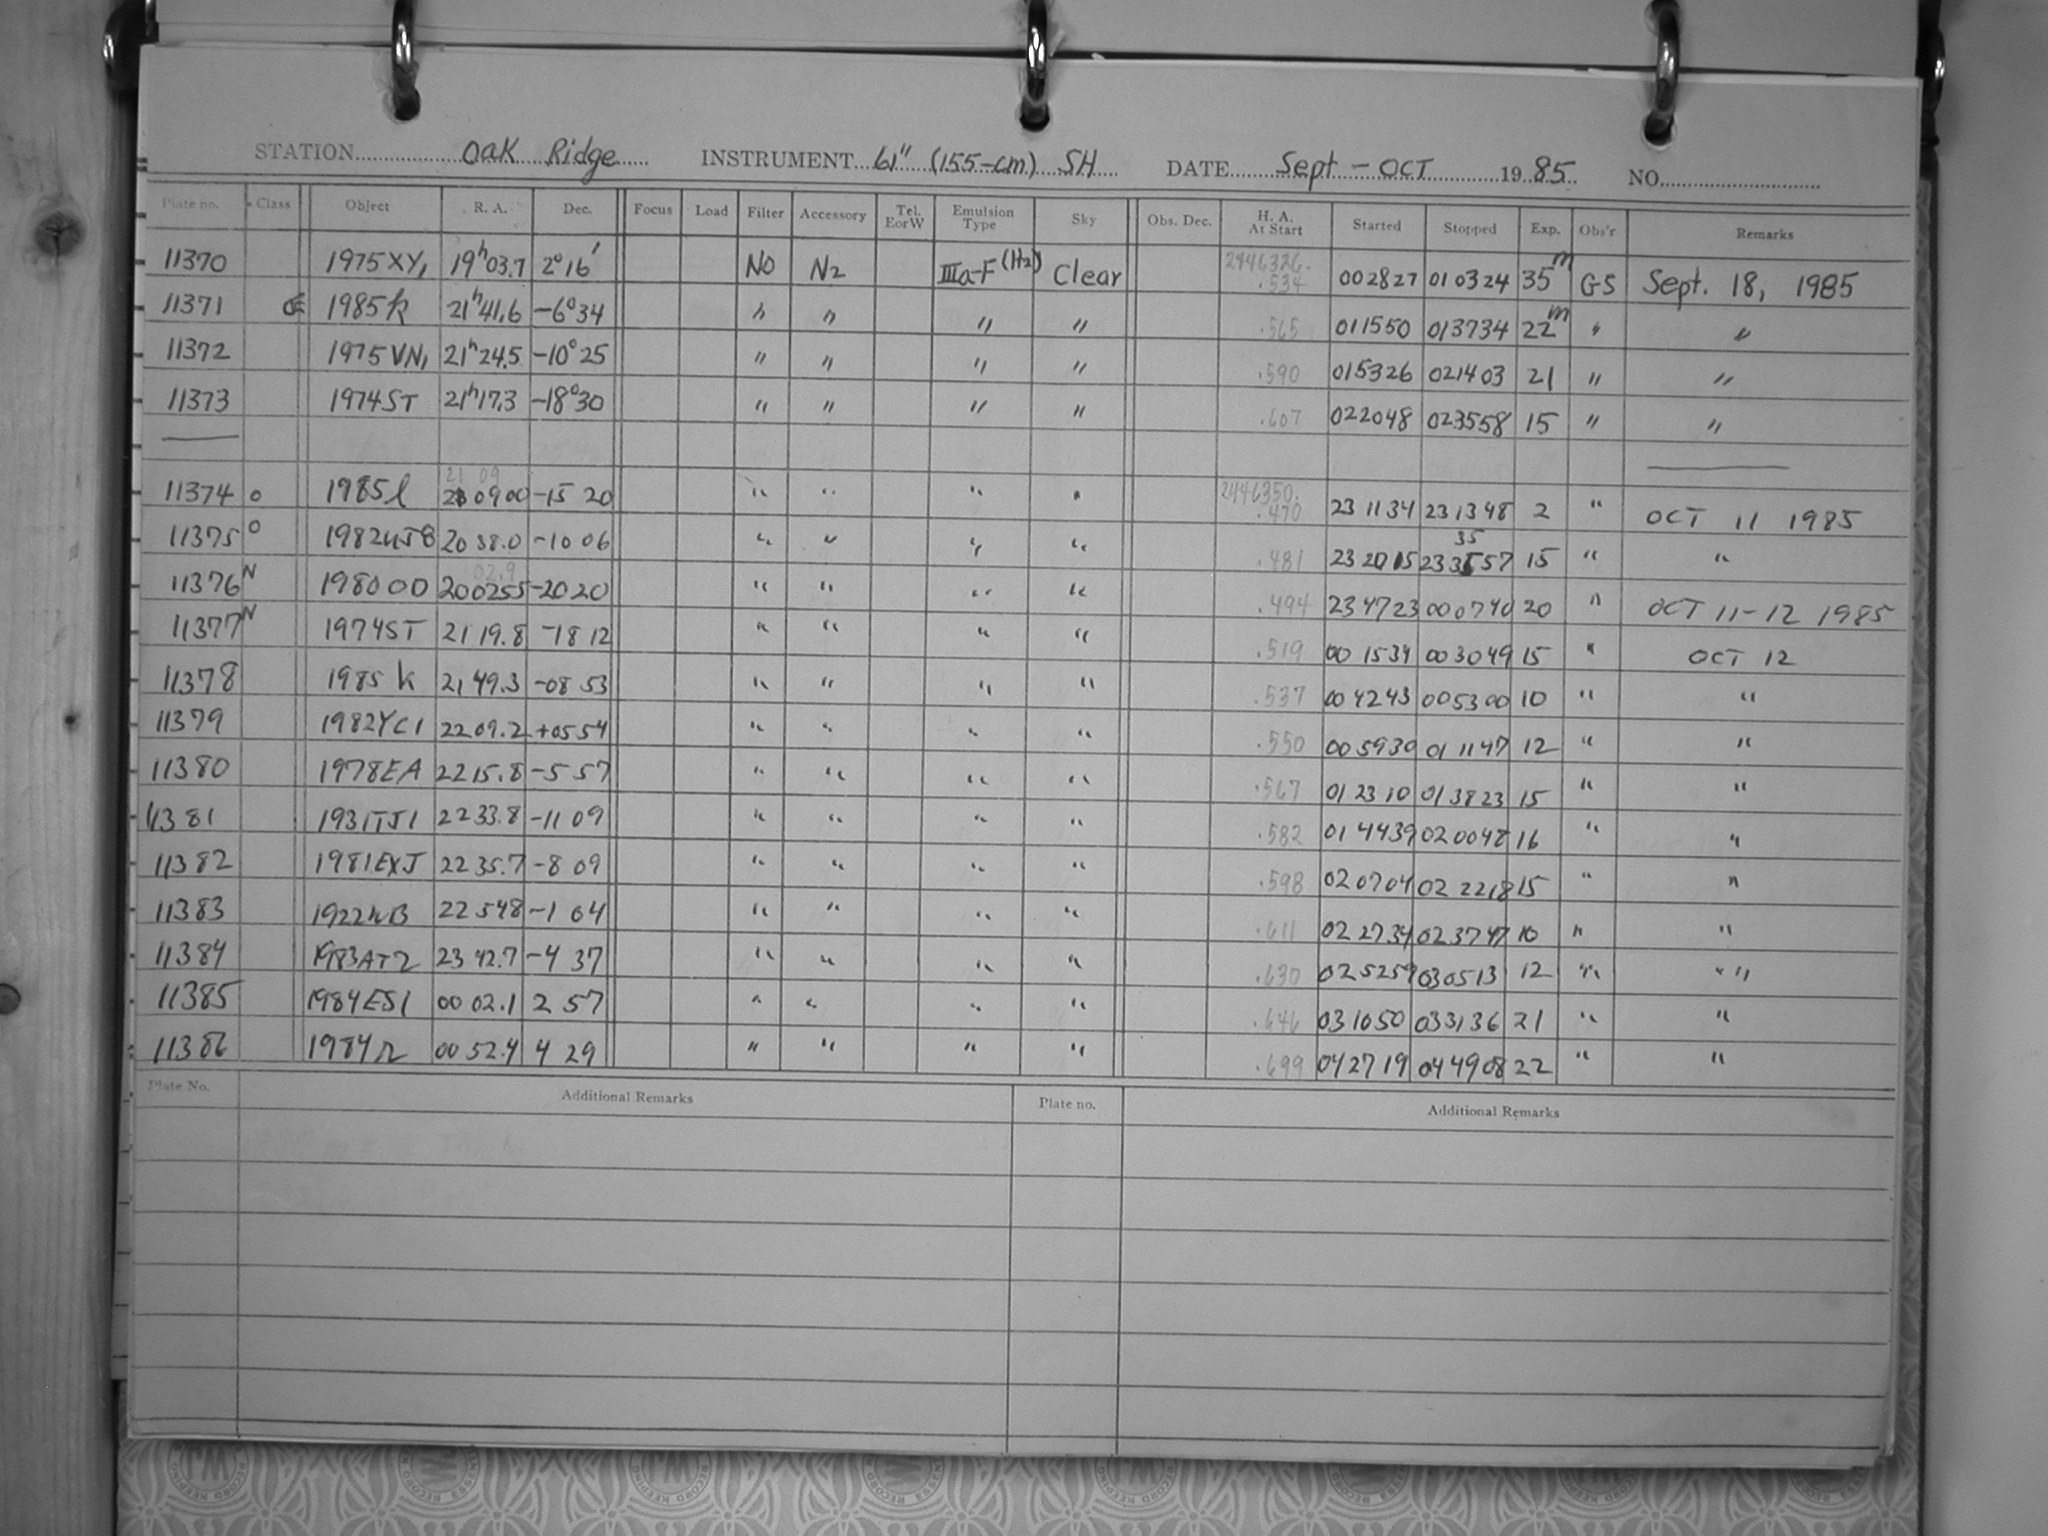 STATION Oak Ridge INSTRUMENT 61" (155-cm) SH DATE Sept - OCT 1985 NO.
Plate no. Class Object R. A. Dec. Focus Load Filter Accessory Tel. EorW Emulsion Type Sky Obs. Dec. H. A. At Start Started Stopped Exp. Obs'r Remarks
11370 1975XY, 19h03.7 2°16' NO N2 IIIa-F (H2) Clear 2446326. .534 002827 010324 35m GS Sept. 18, 1985
11371 1985k 21h41,6 -6°34 " " " " .565 011550 013734 22m " "
11372 1975VN, 21h24.5 -10°25 " " " " .590 015326 021403 21 " "
11373 1974ST 21h17,3 -18°30 " " " " .607 022048 023558 15 " "
21 09
11374 o 1985l 0900 -15 20 " " " " 2446350. .470 23 1134 231348 2 " OCT 11 1985
11375 o 20 38.0 -10 06 " " " " .481 23 2015 35 15 " "
02.9
11376 N 1980OD 200255 -20 20 " " " " .494 234723 000740 20 " OCT 11-12 1985
11377 N 1974ST 21 19.8 -18 12 " " " " .519 00 1534 003049 15 " OCT 12
11378 1985 k 21 49.3 -08 53 " " " " .537 004243 005300 10 " "
11379 1982YC1 2209.2 +0554 " " " " .550 005930 01 1147 12 " "
11380 1978EA 2215.8 -5 57 " " " " .567 01 2310 013823 15 " "
11381 1931TJ1 2233.8 -11 09 " " " " .582 01 4439 020048 16 " "
11382 22 35.7 -8 09 " " " " .598 020704 02 2218 15 " "
11383 22 548 -1 04 " " " " .611 022734 023747 10 " "
11384 1983AT2 23 42.7 -4 37 " " " " .630 025259 030513 12 " "
11385 1984ES1 00 02.1 2 57 " " " " .646 031050 033136 21 " "
11386 00 52.4 4 29 " " " " .699 042719 044908 22 " "
Plate No. Additional Remarks Plate no. Additional Remarks